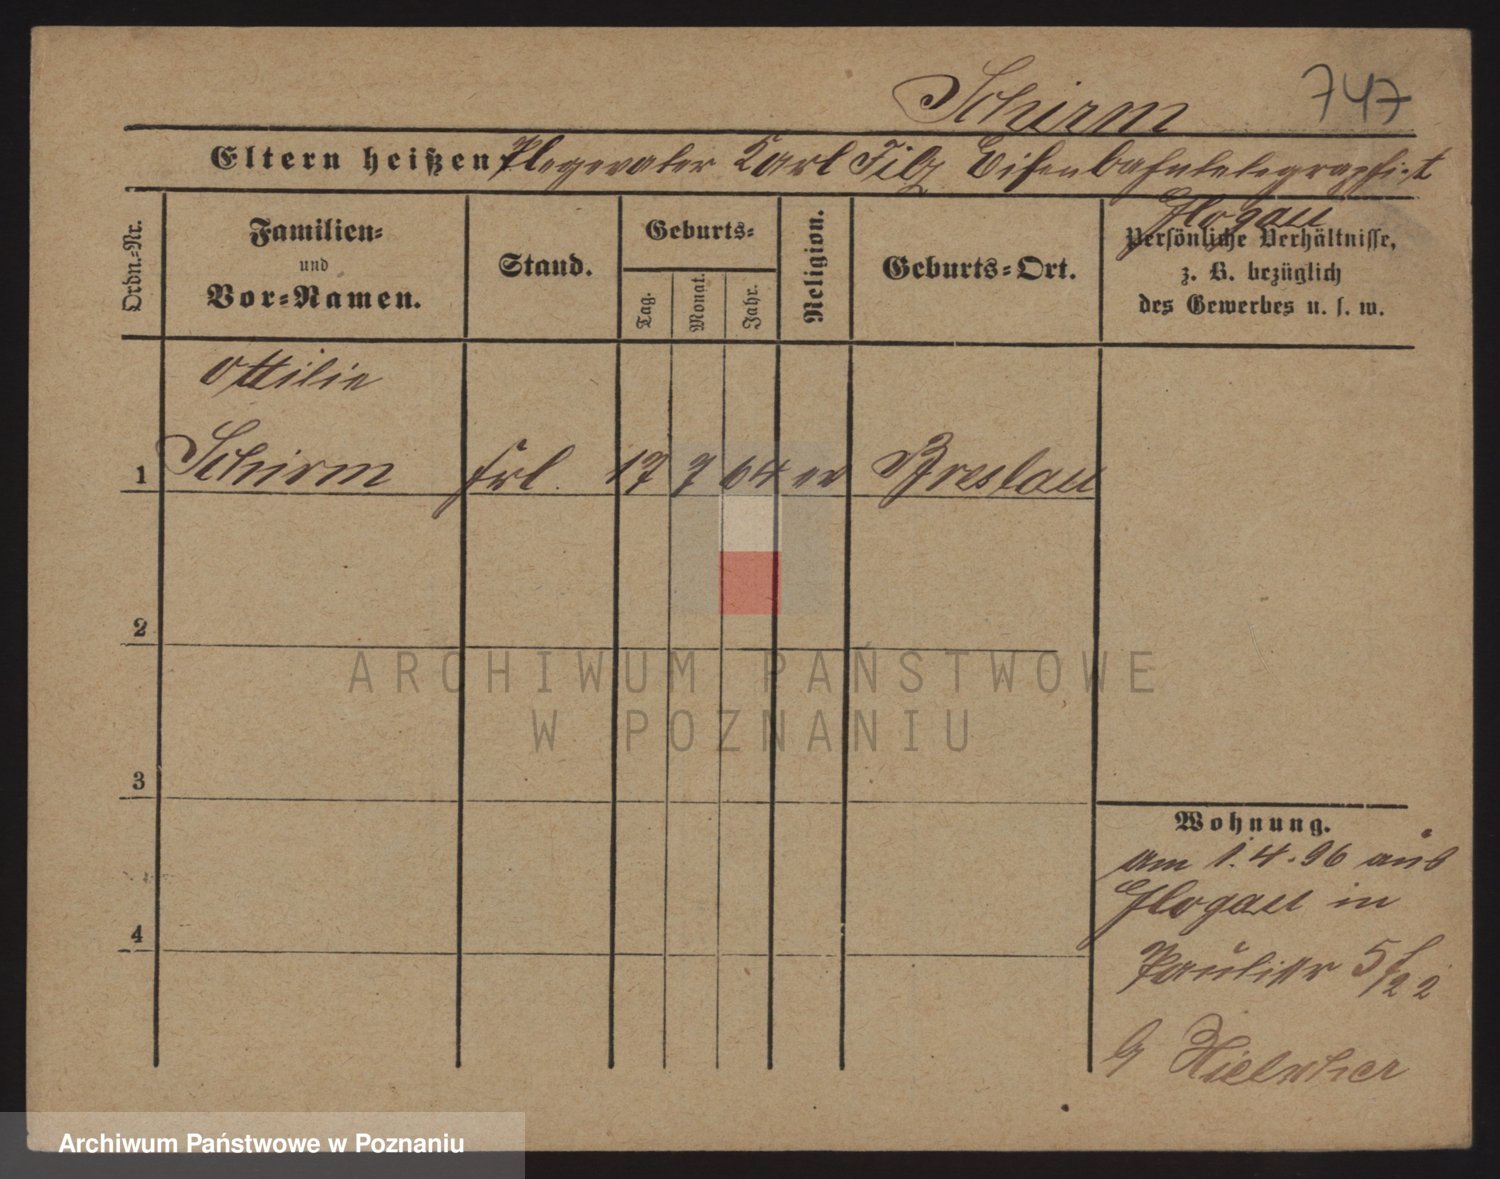 Schirm 747
Eltern heißen Plegevater Karl Filz Eisenbahntelegraphist
Glogau
Ordn.-Nr.
Familien-
und
Vor-Namen.
Stand.
Geburts-
Tag.
Monat.
Jahr.
Religion.
Geburts-Ort.
Persönliche Verhältnisse,
z. B. bezüglich
des Gewerbes u. s. w.
Ottilie
1 Schirm Frl. 17 7 64 ev Breslau
2
3
4
Wohnung.
am 1.4.96 aus
Glogau in
Paulistr 5/22
b Hielscher
ARCHIWUM PAŃSTWOWE
W POZNANIU
Archiwum Państwowe w Poznaniu